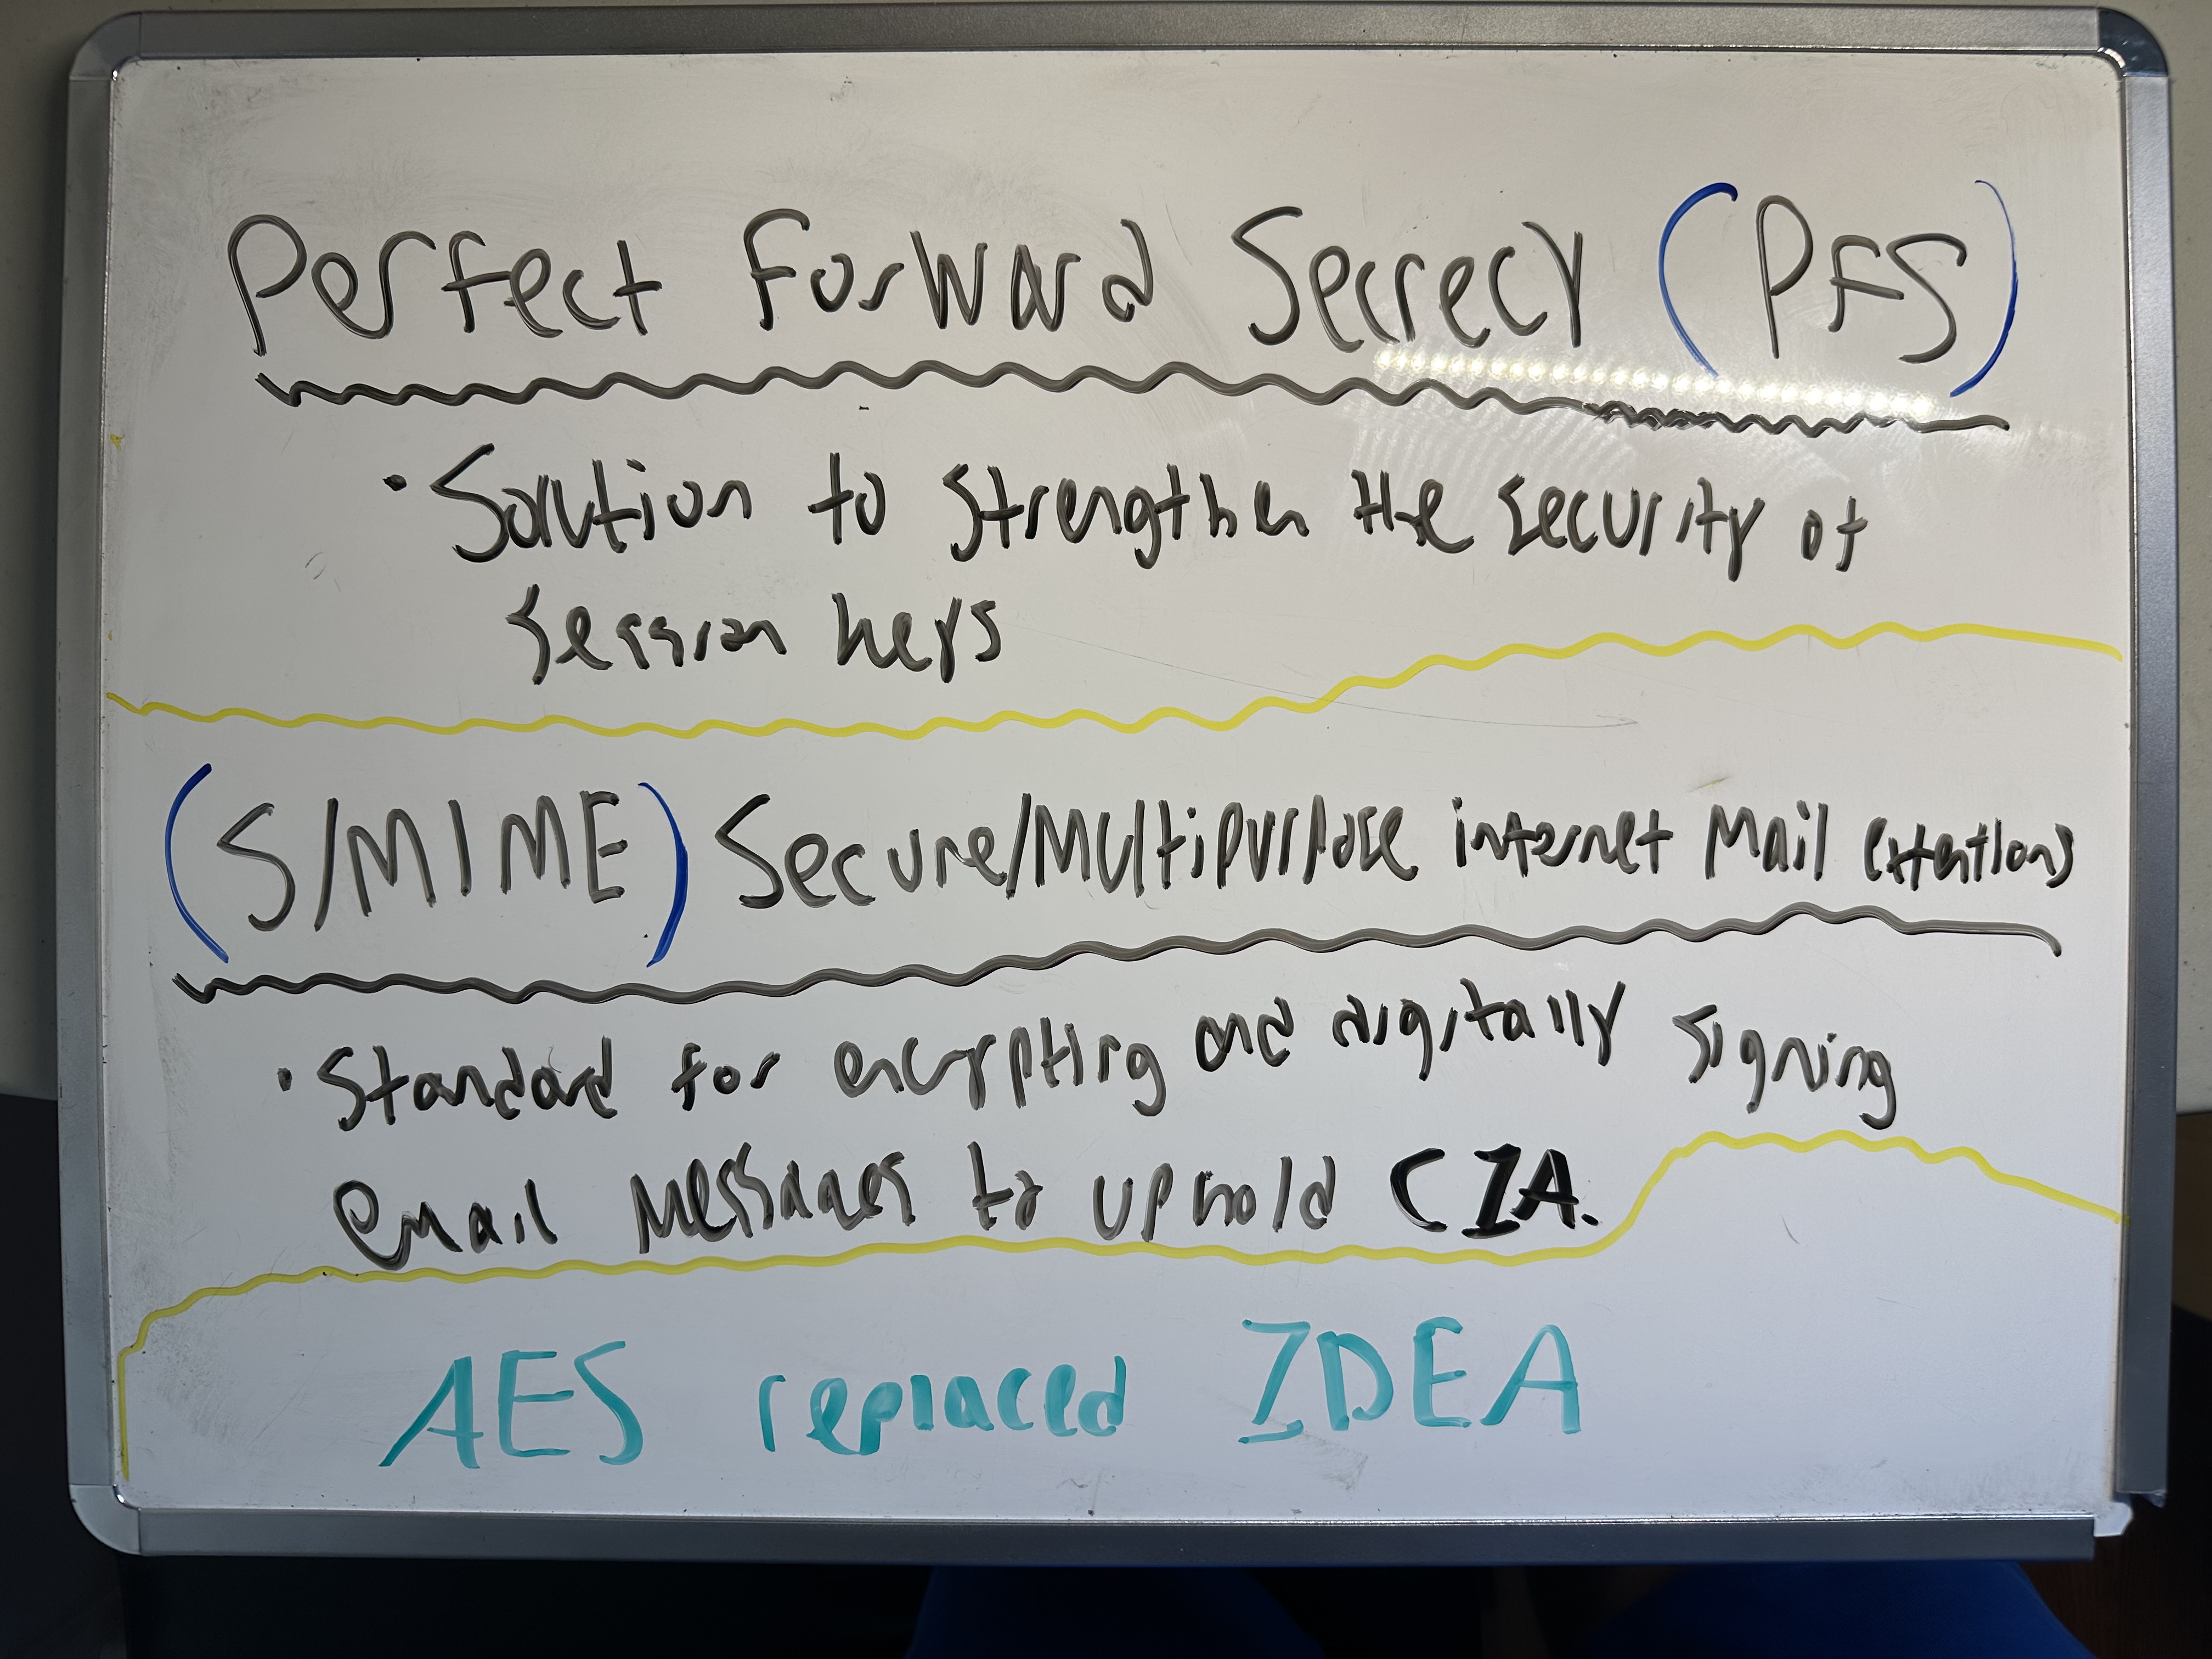 Perfect Forward Secrecy (PFS)
• Solution to strengthen the security of
session keys
(S/MIME) Secure/Multipurpose internet Mail extentions
• Standard for encrypting and digitally signing
email messages to uphold CIA.
AES replaced IDEA